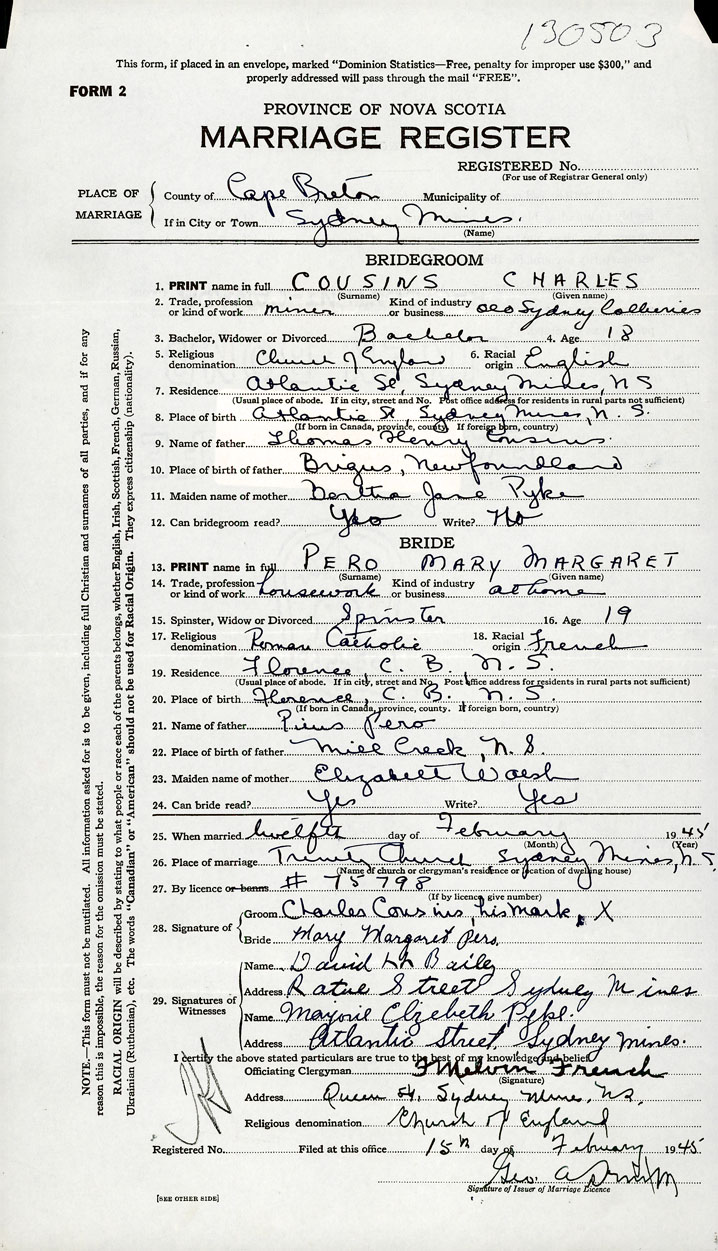 130503
This form, if placed in an envelope, marked "Dominion Statistics—Free, penalty for improper use $300," and
properly addressed will pass through the mail "FREE".
FORM 2
PROVINCE OF NOVA SCOTIA
MARRIAGE REGISTER
REGISTERED No.
(For use of Registrar General only)
PLACE OF MARRIAGE
County of Cape Breton Municipality of
If in City or Town Sydney Mines.
(Name)
BRIDEGROOM
1. PRINT name in full COUSINS CHARLES
(Surname) (Given name)
2. Trade, profession or kind of work miner Kind of industry or business Sydney Collieries
3. Bachelor, Widower or Divorced Bachelor 4. Age 18
5. Religious denomination Church of England 6. Racial origin English
7. Residence Atlantic St, Sydney Mines, NS
(Usual place of abode. If in city, street and No. Post office address for residents in rural parts not sufficient)
8. Place of birth Atlantic St, Sydney Mines, N. S.
(If born in Canada, province, county. If foreign born, country)
9. Name of father Thomas Henry Cousins.
10. Place of birth of father Brigus, Newfoundland
11. Maiden name of mother Bertha Jane Pyke
12. Can bridegroom read? Yes Write? No
BRIDE
13. PRINT name in full PERO MARY MARGARET
(Surname) (Given name)
14. Trade, profession or kind of work housework Kind of industry or business at home
15. Spinster, Widow or Divorced Spinster 16. Age 19
17. Religious denomination Roman Catholic 18. Racial origin French
19. Residence Florence, C. B. N. S.
(Usual place of abode. If in city, street and No. Post office address for residents in rural parts not sufficient)
20. Place of birth Florence, C. B. N. S.
(If born in Canada, province, county. If foreign born, country)
21. Name of father Pius Pero
22. Place of birth of father Mill Creek, N. S.
23. Maiden name of mother Elizabeth Walsh
24. Can bride read? Yes Write? Yes
25. When married twelfth day of February 1945
(Month) (Year)
26. Place of marriage Trinity Church Sydney Mines, N.S.
(Name of church or clergyman's residence or location of dwelling house)
27. By licence or banns # 75798
(If by licence, give number)
28. Signature of
Groom Charles Cousins, his mark, X
Bride Mary Margaret Pero.
29. Signatures of Witnesses
Name David Bailey
Address Street Sydney Mines
Name Marjorie Elzebeth Pyke.
Address Atlantic Street, Sydney Mines.
I certify the above stated particulars are true to the best of my knowledge and belief.
Officiating Clergyman Melvin French
(Signature)
Address Queen St, Sydney Mines, N.S.
Religious denomination Church of England
Registered No. Filed at this office 15th day of February 1945
Geo. A
Signature of Issuer of Marriage Licence
[SEE OTHER SIDE]
NOTE.—This form must not be mutilated. All information asked for is to be given, including full Christian and surnames of all parties, and if for any
reason this is impossible, the reason for the omission must be stated.
RACIAL ORIGIN will be described by stating to what people or race each of the parents belongs, whether English, Irish, Scottish, French, German, Russian,
Ukrainian (Ruthenian), etc. The words "Canadian" or "American" should not be used for Racial Origin. They express citizenship (nationality).